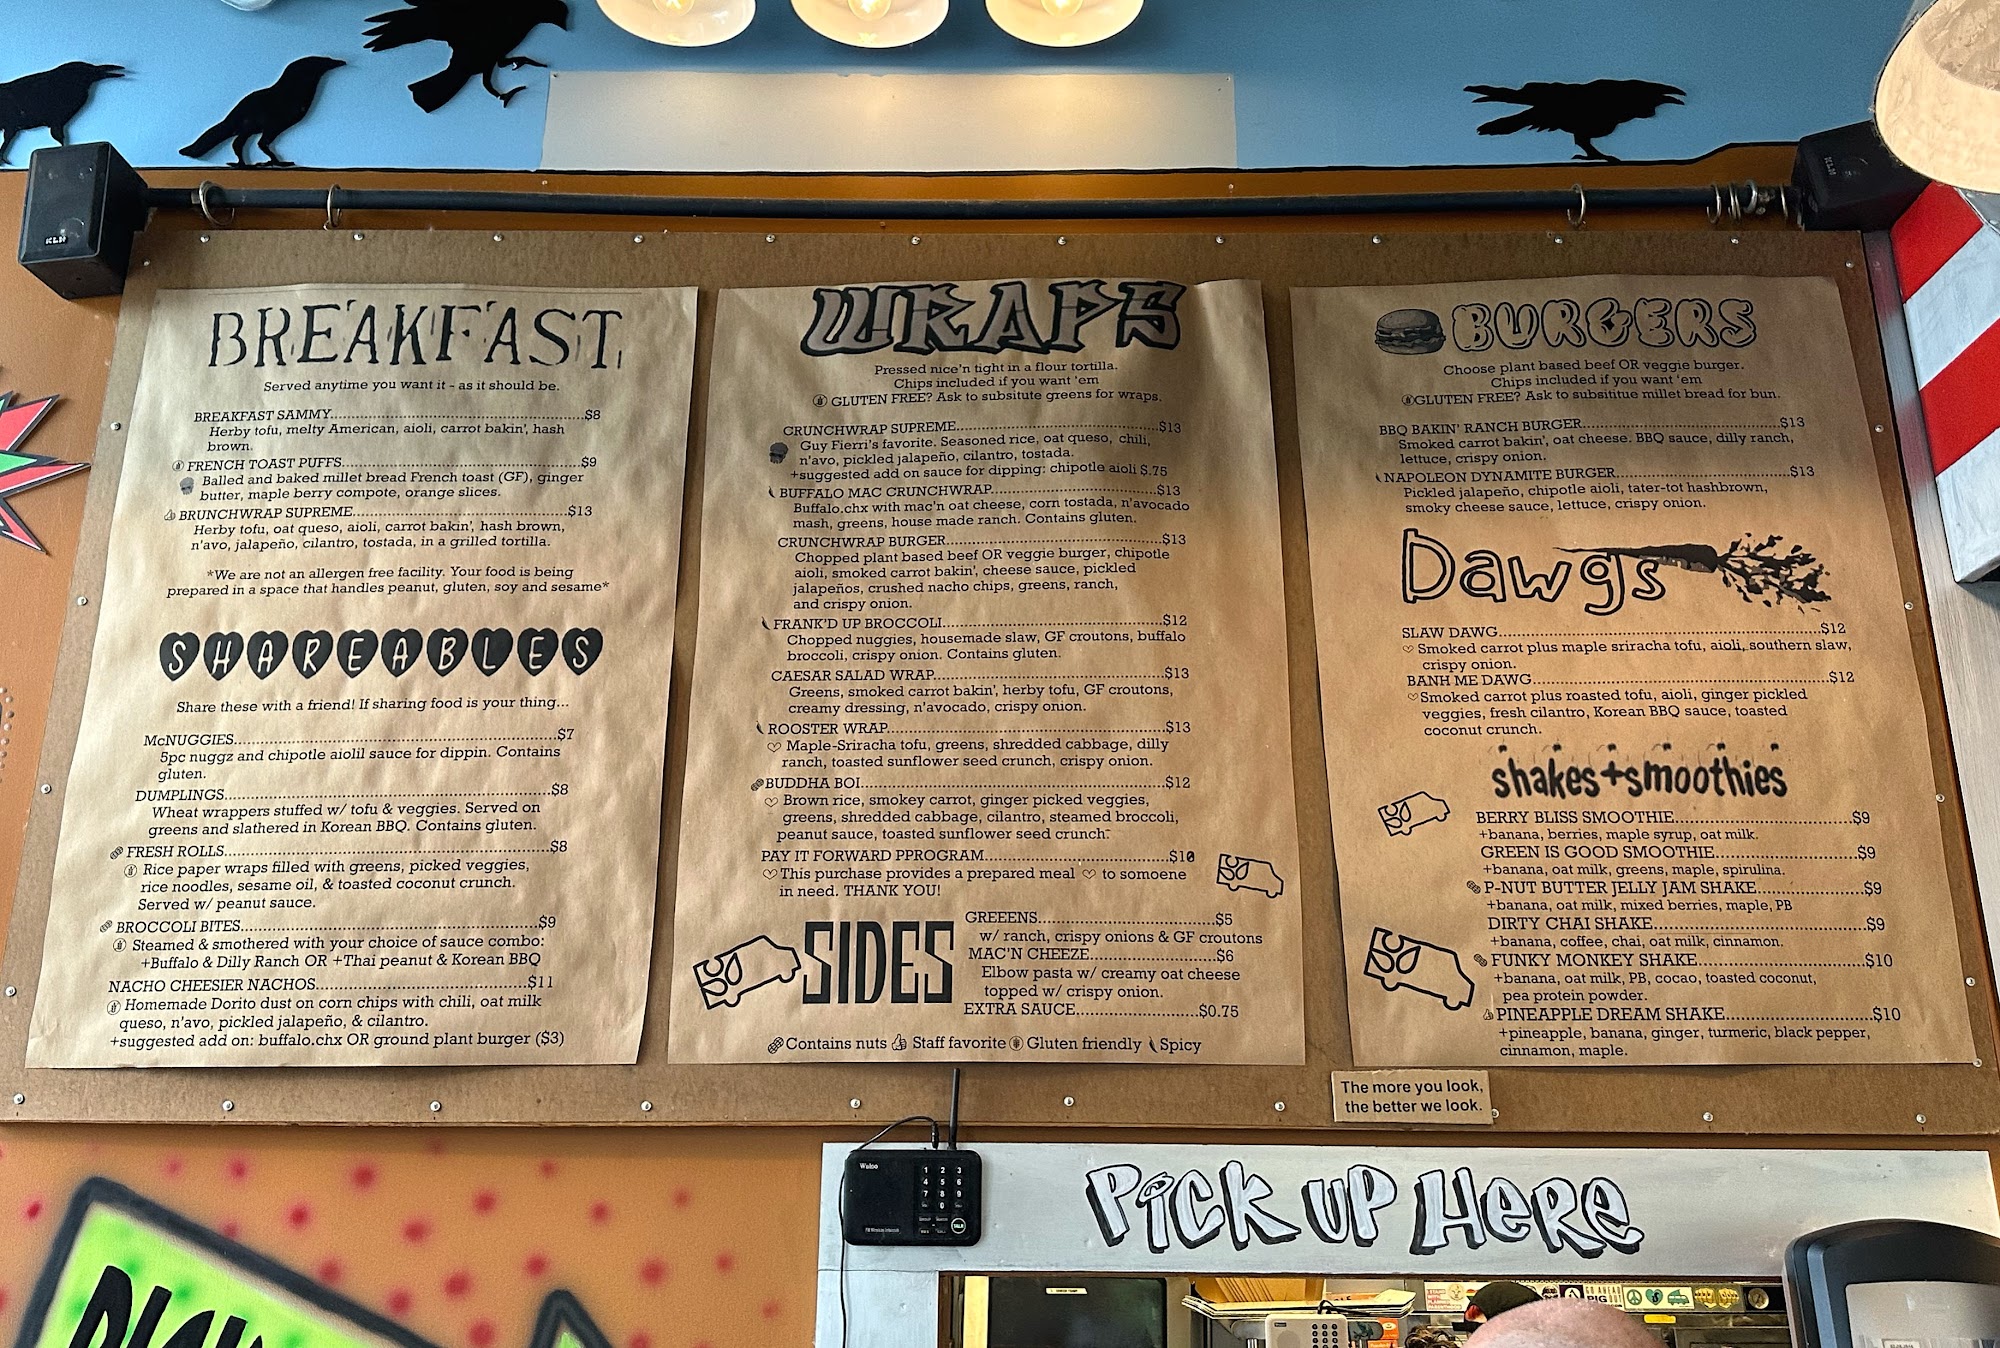 BREAKFAST
Served anytime you want it - as it should be.
BREAKFAST SAMMY..........$8
Herby tofu, melty American, aioli, carrot bakin', hash
brown.
FRENCH TOAST PUFFS..........$9
Balled and baked millet bread French toast (GF), ginger
butter, maple berry compote, orange slices.
BRUNCHWRAP SUPREME..........$13
Herby tofu, oat queso, aioli, carrot bakin', hash brown,
n'avo, jalapeño, cilantro, tostada, in a grilled tortilla.
*We are not an allergen free facility. Your food is being
prepared in a space that handles peanut, gluten, soy and sesame*
SHAREABLES
Share these with a friend! If sharing food is your thing...
McNUGGIES..........$7
5pc nuggz and chipotle aiolil sauce for dippin. Contains
gluten.
DUMPLINGS..........$8
Wheat wrappers stuffed w/ tofu & veggies. Served on
greens and slathered in Korean BBQ. Contains gluten.
FRESH ROLLS..........$8
Rice paper wraps filled with greens, picked veggies,
rice noodles, sesame oil, & toasted coconut crunch.
Served w/ peanut sauce.
BROCCOLI BITES..........$9
Steamed & smothered with your choice of sauce combo:
+Buffalo & Dilly Ranch OR +Thai peanut & Korean BBQ
NACHO CHEESIER NACHOS..........$11
Homemade Dorito dust on corn chips with chili, oat milk
queso, n'avo, pickled jalapeño, & cilantro.
+suggested add on: buffalo.chx OR ground plant burger ($3)
WRAPS
Pressed nice'n tight in a flour tortilla.
Chips included if you want 'em
GLUTEN FREE? Ask to subsitute greens for wraps.
CRUNCHWRAP SUPREME..........$13
Guy Fierri's favorite. Seasoned rice, oat queso, chili,
n'avo, pickled jalapeño, cilantro, tostada.
+suggested add on sauce for dipping: chipotle aioli $.75
BUFFALO MAC CRUNCHWRAP..........$13
Buffalo.chx with mac'n oat cheese, corn tostada, n'avocado
mash, greens, house made ranch. Contains gluten.
CRUNCHWRAP BURGER..........$13
Chopped plant based beef OR veggie burger, chipotle
aioli, smoked carrot bakin', cheese sauce, pickled
jalapeños, crushed nacho chips, greens, ranch,
and crispy onion.
FRANK'D UP BROCCOLI..........$12
Chopped nuggies, housemade slaw, GF croutons, buffalo
broccoli, crispy onion. Contains gluten.
CAESAR SALAD WRAP..........$13
Greens, smoked carrot bakin', herby tofu, GF croutons,
creamy dressing, n'avocado, crispy onion.
ROOSTER WRAP..........$13
Maple-Sriracha tofu, greens, shredded cabbage, dilly
ranch, toasted sunflower seed crunch, crispy onion.
BUDDHA BOI..........$12
Brown rice, smokey carrot, ginger picked veggies,
greens, shredded cabbage, cilantro, steamed broccoli,
peanut sauce, toasted sunflower seed crunch.
PAY IT FORWARD PPROGRAM..........$10
This purchase provides a prepared meal to somoene
in need. THANK YOU!
SIDES
GREEENS..........$5
w/ ranch, crispy onions & GF croutons
MAC'N CHEEZE..........$6
Elbow pasta w/ creamy oat cheese
topped w/ crispy onion.
EXTRA SAUCE..........$0.75
Contains nuts Staff favorite Gluten friendly Spicy
BURGERS
Choose plant based beef OR veggie burger.
Chips included if you want 'em
GLUTEN FREE? Ask to subsititue millet bread for bun.
BBQ BAKIN' RANCH BURGER..........$13
Smoked carrot bakin', oat cheese. BBQ sauce, dilly ranch,
lettuce, crispy onion.
NAPOLEON DYNAMITE BURGER..........$13
Pickled jalapeño, chipotle aioli, tater-tot hashbrown,
smoky cheese sauce, lettuce, crispy onion.
Dawgs
SLAW DAWG..........$12
Smoked carrot plus maple sriracha tofu, aioli, southern slaw,
crispy onion.
BANH ME DAWG..........$12
Smoked carrot plus roasted tofu, aioli, ginger pickled
veggies, fresh cilantro, Korean BBQ sauce, toasted
coconut crunch.
shakes+smoothies
BERRY BLISS SMOOTHIE..........$9
+banana, berries, maple syrup, oat milk.
GREEN IS GOOD SMOOTHIE..........$9
+banana, oat milk, greens, maple, spirulina.
P-NUT BUTTER JELLY JAM SHAKE..........$9
+banana, oat milk, mixed berries, maple, PB
DIRTY CHAI SHAKE..........$9
+banana, coffee, chai, oat milk, cinnamon.
FUNKY MONKEY SHAKE..........$10
+banana, oat milk, PB, cocao, toasted coconut,
pea protein powder.
PINEAPPLE DREAM SHAKE..........$10
+pineapple, banana, ginger, turmeric, black pepper,
cinnamon, maple.
The more you look,
the better we look.
PICK UP HERE
KLH
KLH
1 2 3
4 5 6
7 8 9
0
TALK